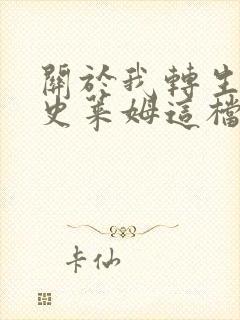 關於我轉生
史萊姆這檔
卡仙